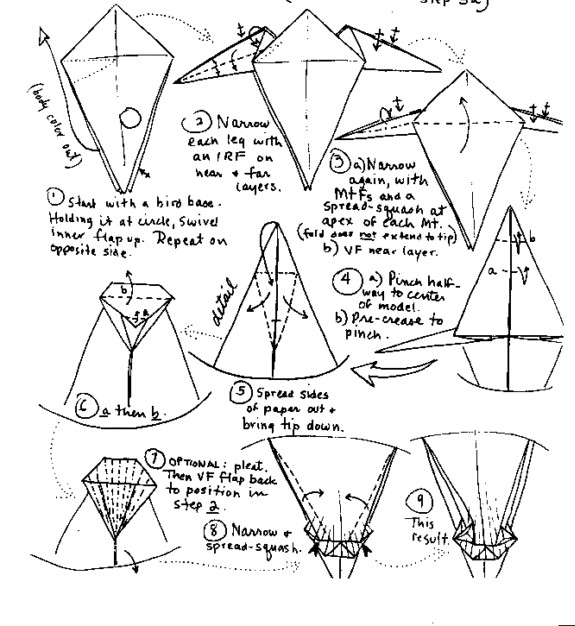 step 3a)
(body color out)
① Start with a bird base.
Holding it at circle, swivel
inner flap up. Repeat on
opposite side.
② Narrow
each leg with
an IRF on
near + far
layers.
③ a) Narrow
again, with
MtFs and a
spread-squash at
apex of each Mt.
(fold does not extend to tip)
b) VF near layer.
④ a) Pinch half-
way to center
of model.
b) Pre-crease to
pinch.
b
a
detail
⑤ Spread sides
of paper out +
bring tip down.
b
a
⑥ a then b.
⑦ OPTIONAL: pleat.
Then VF flap back
to position in
step 2.
⑧ Narrow +
spread-squash.
⑨
This
result.